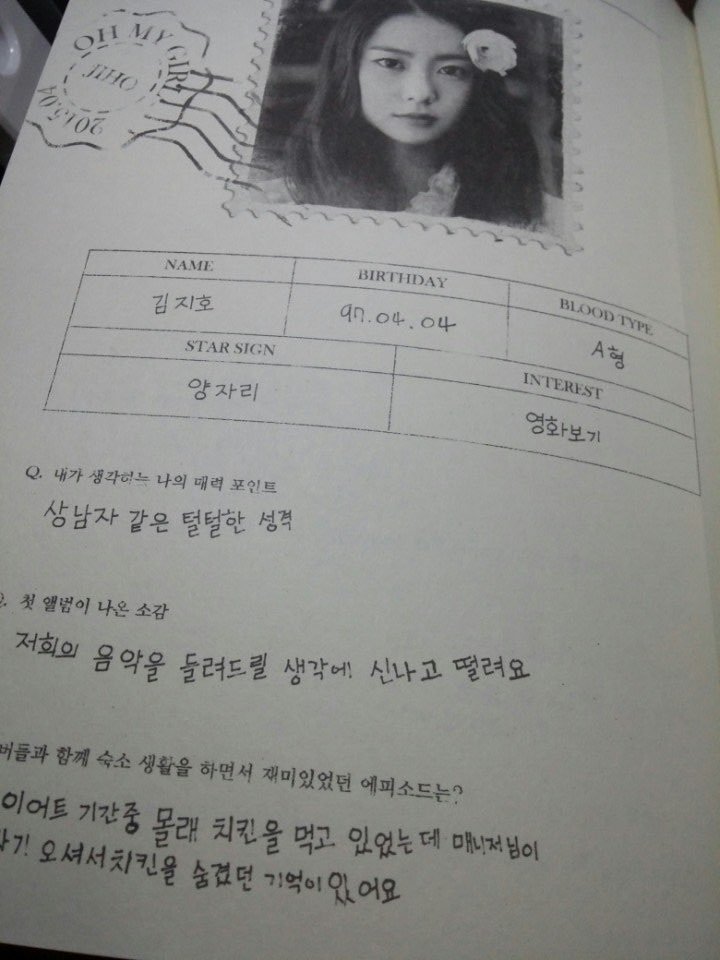 OH MY GIRL
JIHO
2015.04
NAME
BIRTHDAY
BLOOD TYPE
김지호
97.04.04
A형
STAR SIGN
INTEREST
양자리
영화보기
Q. 내가 생각하는 나의 매력 포인트
상남자 같은 털털한 성격
Q. 첫 앨범이 나온 소감
저희의 음악을 들려드릴 생각에! 신나고 떨려요
버들과 함께 숙소 생활을 하면서 재미있었던 에피소드는?
이어트 기간중 몰래 치킨을 먹고 있었는데 매니저님이
오셔서 치킨을 숨겼던 기억이 있어요